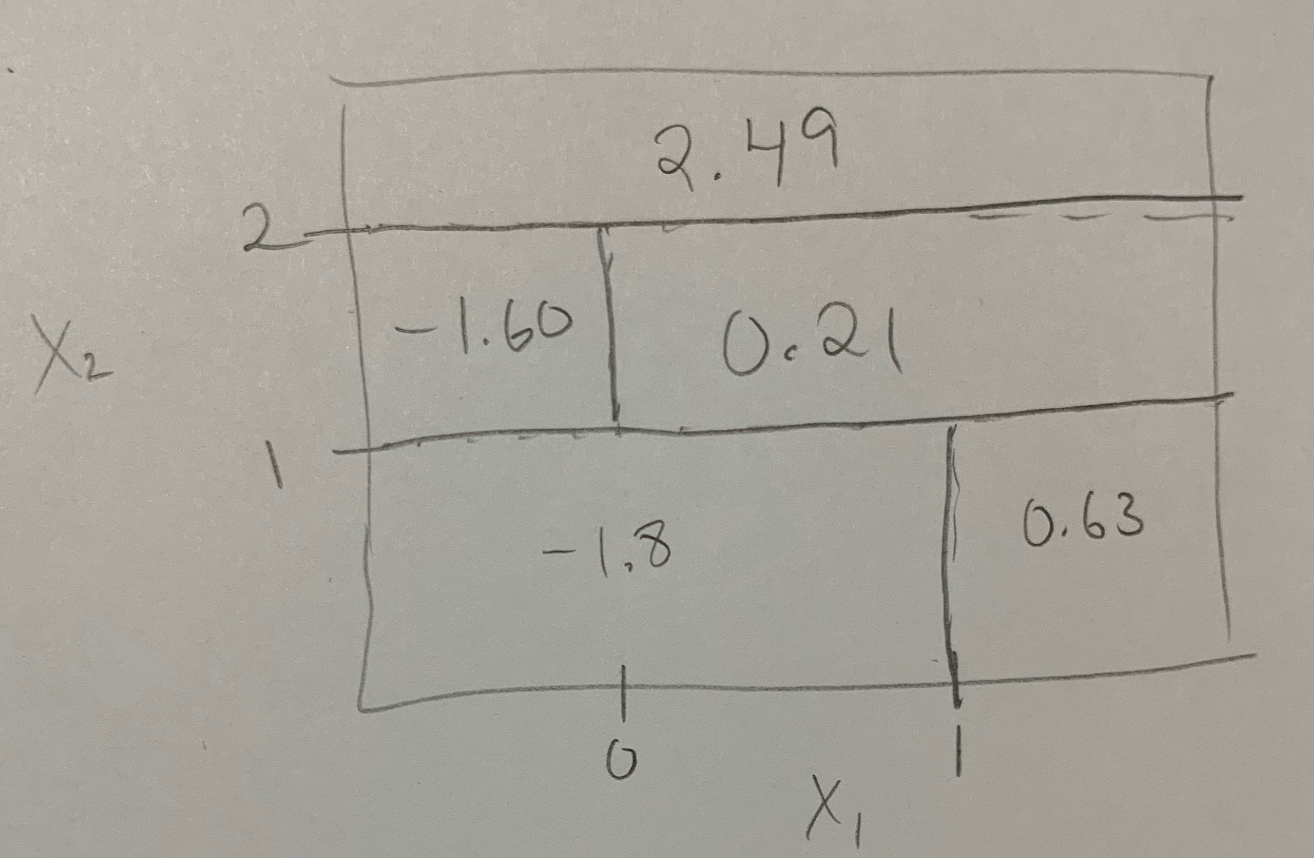 2.49
2
-1.60 0.21
X2
1
-1.8 0.63
0 1
X1